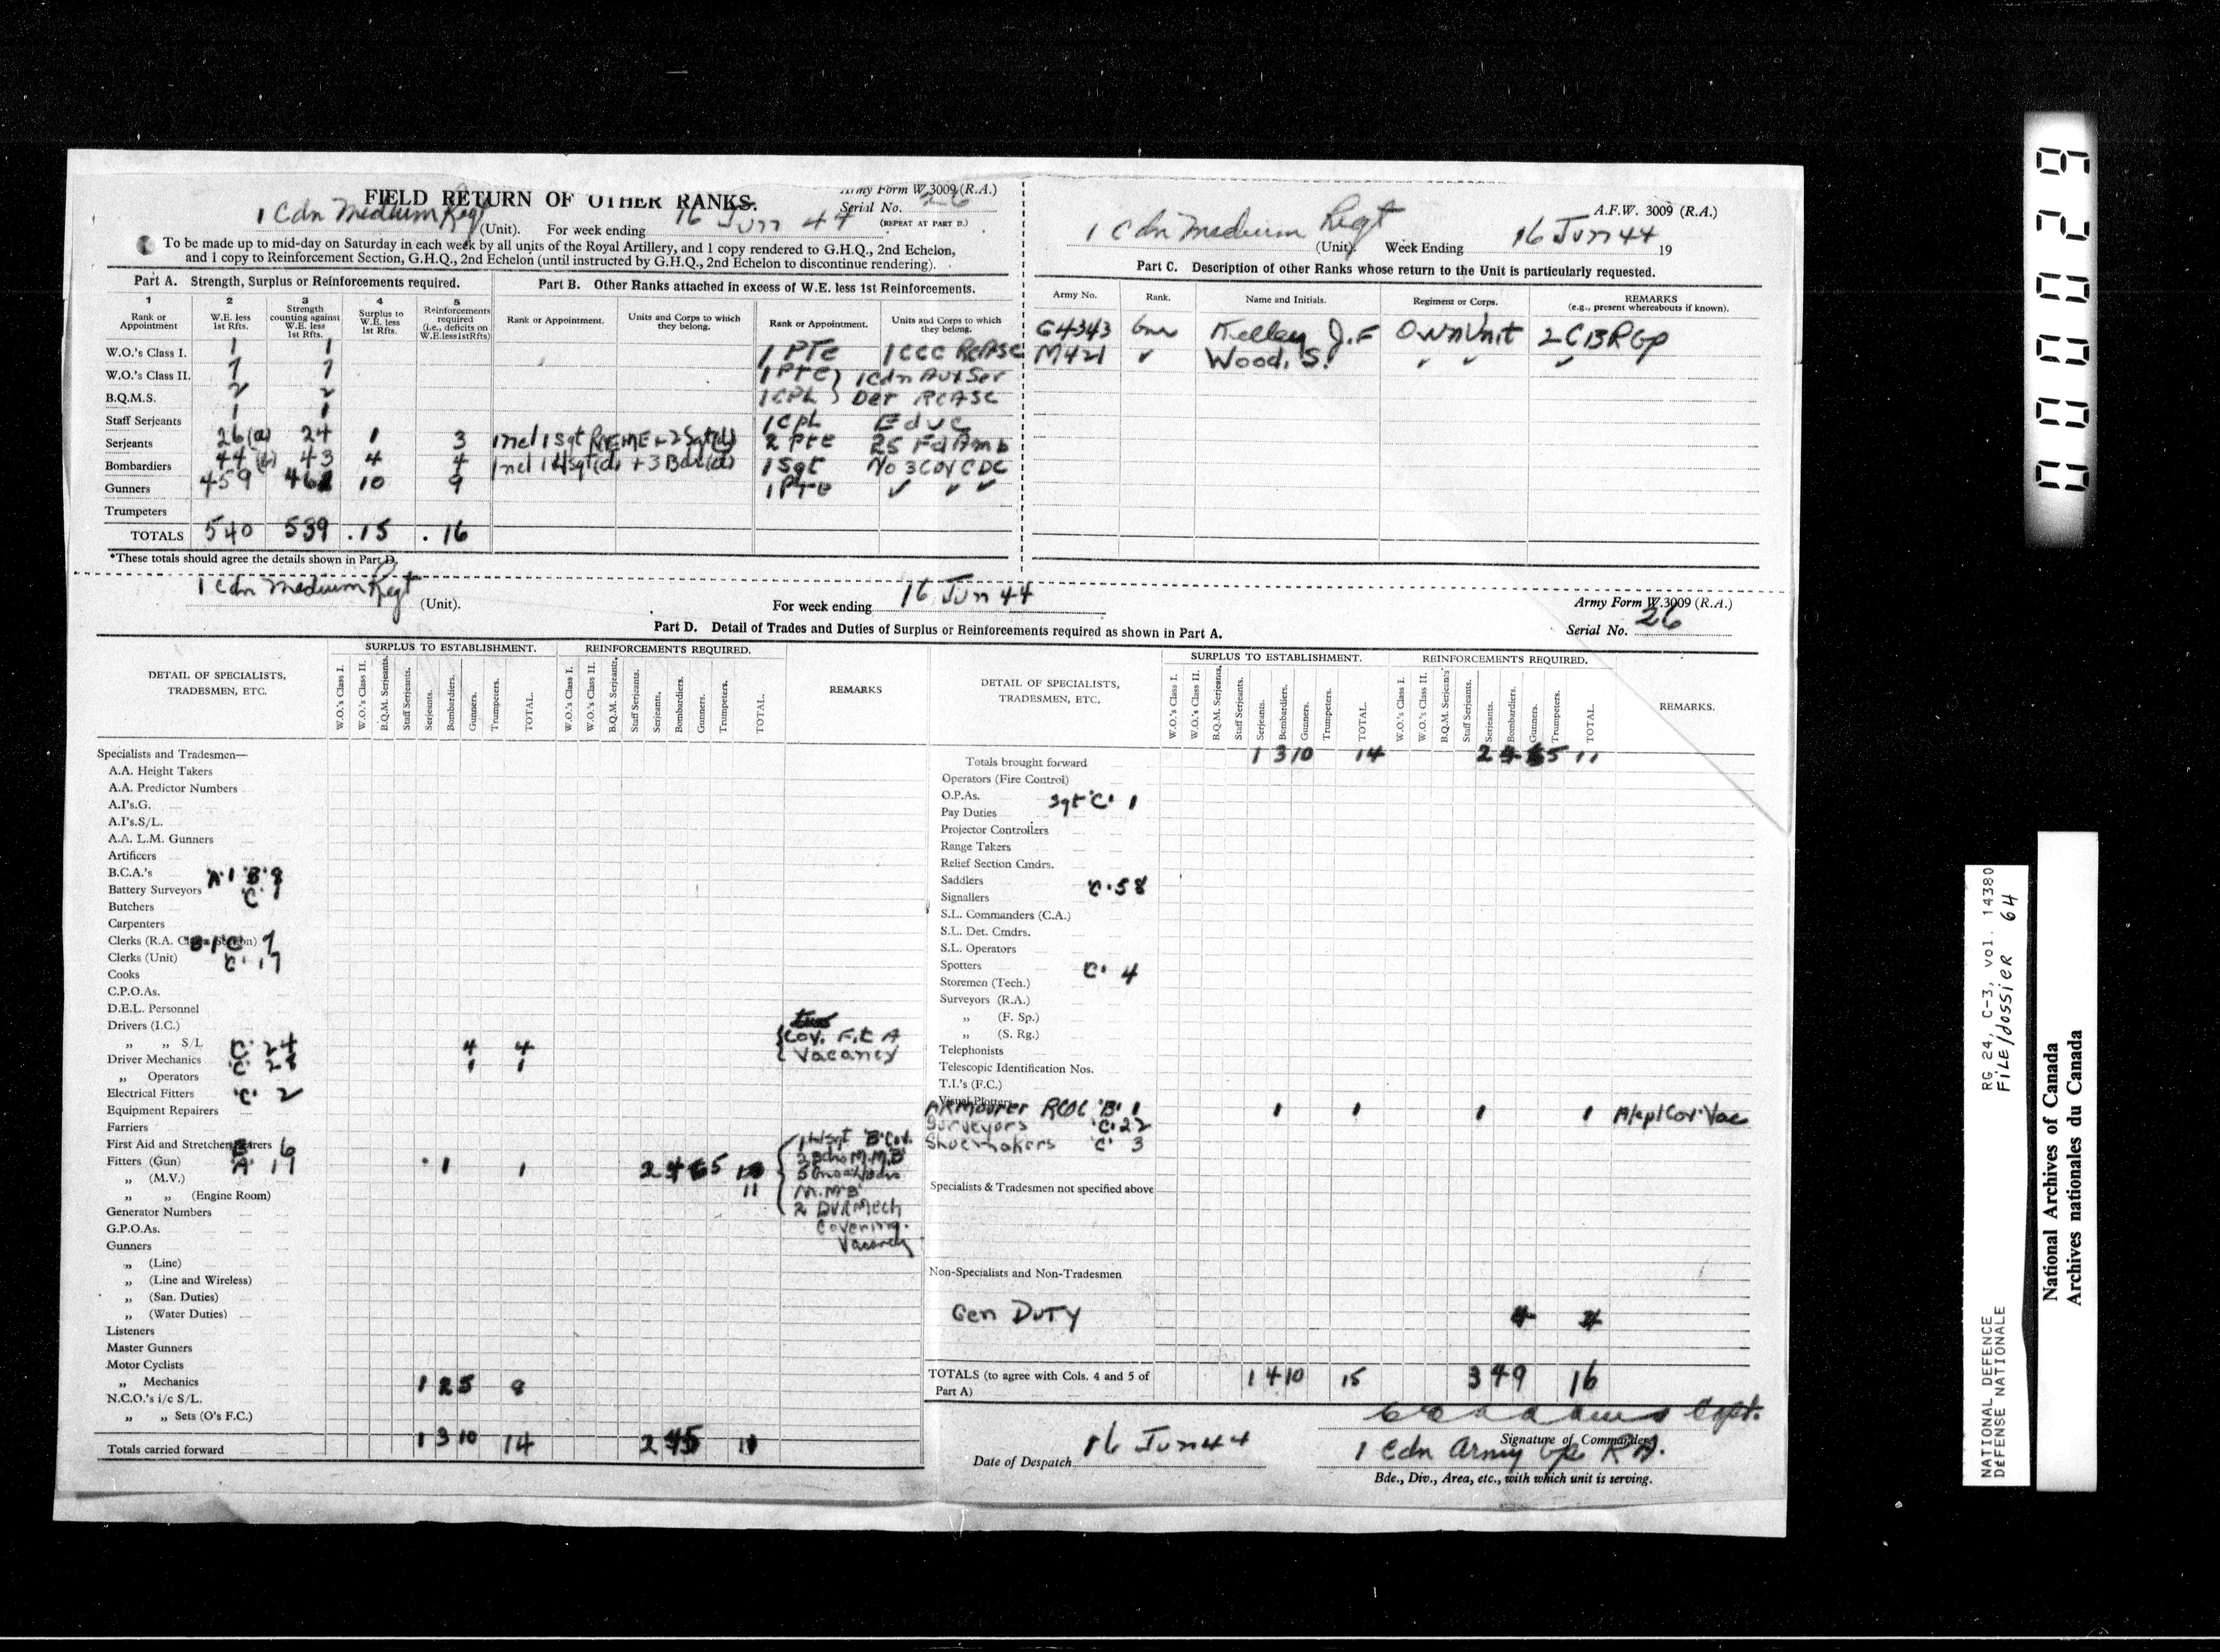 FIELD RETURN OF OTHER RANKS.
Army Form W.3009 (R.A.)
Serial No. 26
(REPEAT AT PART D.)
1 Cdn Medium Regt (Unit). For week ending 16 Jun 44
To be made up to mid-day on Saturday in each week by all units of the Royal Artillery, and 1 copy rendered to G.H.Q., 2nd Echelon,
and 1 copy to Reinforcement Section, G.H.Q., 2nd Echelon (until instructed by G.H.Q., 2nd Echelon to discontinue rendering).
Part A. Strength, Surplus or Reinforcements required.
1 2 3 4 5
Rank or Appointment
W.E. less 1st Rfts.
Strength counting against W.E. less 1st Rfts.
Surplus to W.E. less 1st Rfts.
Reinforcements required (i.e., deficits on W.E. less 1st Rfts)
W.O.'s Class I. 1 1
W.O.'s Class II. 7 7
B.Q.M.S. 2 2
Staff Serjeants 1 1
Serjeants 26 (a) 24 1 3
Bombardiers 44 (b) 43 4 4
Gunners 459 461 10 9
Trumpeters
TOTALS 540 539 . 15 . 16
*These totals should agree the details shown in Part D.
Part B. Other Ranks attached in excess of W.E. less 1st Reinforcements.
Rank or Appointment.
Units and Corps to which they belong.
Rank or Appointment.
Units and Corps to which they belong.
1 PTE 1 CCC RCASC
1 PTE } 1 Cdn Aux Ser
1 CPL } Det RCASC
1 CPL Educ
Incl 1 Sgt REME + 2 Sgt(d) 2 Pte 25 Fd Amb
Incl 1 L/Sgt(d) + 3 Bdr(d) 1 Sgt No 3 Coy CDC
1 PTE ✓ ✓ ✓
A.F.W. 3009 (R.A.)
1 Cdn Medium Regt (Unit). Week Ending 16 Jun 44 19
Part C. Description of other Ranks whose return to the Unit is particularly requested.
Army No. Rank. Name and Initials. Regiment or Corps. REMARKS
(e.g., present whereabouts if known).
G4343 Gnr Kelley J.F Own Unit 2 CBRGp
M421 ✓ Wood, S. ✓ ✓ ✓
1 Cdn Medium Regt (Unit).
For week ending 16 Jun 44
Army Form W.3009 (R.A.)
Serial No. 26
Part D. Detail of Trades and Duties of Surplus or Reinforcements required as shown in Part A.
DETAIL OF SPECIALISTS, TRADESMEN, ETC.
SURPLUS TO ESTABLISHMENT.
W.O.'s Class I.
W.O.'s Class II.
B.Q.M. Serjeants.
Staff Serjeants.
Serjeants.
Bombardiers.
Gunners.
Trumpeters.
TOTAL.
REINFORCEMENTS REQUIRED.
W.O.'s Class I.
W.O.'s Class II.
B.Q.M. Serjeants.
Staff Serjeants.
Serjeants.
Bombardiers.
Gunners.
Trumpeters.
TOTAL.
REMARKS
Specialists and Tradesmen—
A.A. Height Takers
A.A. Predictor Numbers
A.I's.G.
A.I's.S/L.
A.A. L.M. Gunners
Artificers
B.C.A.'s 'A' 1 'B' 8
Battery Surveyors 'C' 1
Butchers
Carpenters
Clerks (R.A. Section) 'C' 7
Clerks (Unit) 'C' 17
Cooks
C.P.O.As.
D.E.L. Personnel
Drivers (I.C.)
„ „ S/L 'C' 24 4 4 Cov. F.t A
Driver Mechanics 'C' 28 1 1 Vacancy
„ Operators
Electrical Fitters 'C' 2
Equipment Repairers
Farriers
First Aid and Stretcher Bearers 6
Fitters (Gun) 'A' 17 1 1 2 4 5
„ (M.V.) 11
„ „ (Engine Room)
1 L/Sgt 'B' Cov.
M.M.'B'
M.M'B'
2 DVR Mech
Covering.
Vacancy
Generator Numbers
G.P.O.As.
Gunners
„ (Line)
„ (Line and Wireless)
„ (San. Duties)
„ (Water Duties)
Listeners
Master Gunners
Motor Cyclists
„ Mechanics 1 2 5 8
N.C.O.'s i/c S/L.
„ „ Sets (O's F.C.)
Totals carried forward 1 3 10 14 2 4 5 11
DETAIL OF SPECIALISTS, TRADESMEN, ETC.
SURPLUS TO ESTABLISHMENT.
W.O.'s Class I.
W.O.'s Class II.
B.Q.M. Serjeants.
Staff Serjeants.
Serjeants.
Bombardiers.
Gunners.
Trumpeters.
TOTAL.
REINFORCEMENTS REQUIRED.
W.O.'s Class I.
W.O.'s Class II.
B.Q.M. Serjeants
Staff Serjeants.
Serjeants.
Bombardiers.
Gunners.
Trumpeters.
TOTAL.
REMARKS.
Totals brought forward 1 3 10 14 2 4 5 11
Operators (Fire Control)
O.P.As. Sgt 'C' 1
Pay Duties
Projector Controllers
Range Takers
Relief Section Cmdrs.
Saddlers 'C' 58
Signallers
S.L. Commanders (C.A.)
S.L. Det. Cmdrs.
S.L. Operators
Spotters 'C' 4
Storemen (Tech.)
Surveyors (R.A.)
„ (F. Sp.)
„ (S. Rg.)
Telephonists
Telescopic Identification Nos.
T.I.'s (F.C.)
Visual Plotters
Armourer RCOC 'B' 1 1 1 1 1 A/cpl Cov. Vac
Surveyors 'C' 22
Shoemakers 'C' 3
Specialists & Tradesmen not specified above
Non-Specialists and Non-Tradesmen
Gen DUTY 4 4
TOTALS (to agree with Cols. 4 and 5 of Part A) 1 4 10 15 3 4 9 16
Capt.
Signature of Commander
Date of Despatch 16 Jun 44
1 Cdn Army Gp R A.
Bde., Div., Area, etc., with which unit is serving.
000029
RG 24, C-3, vol. 14380
FILE/dossier 64
NATIONAL DEFENCE
DÉFENSE NATIONALE
National Archives of Canada
Archives nationales du Canada